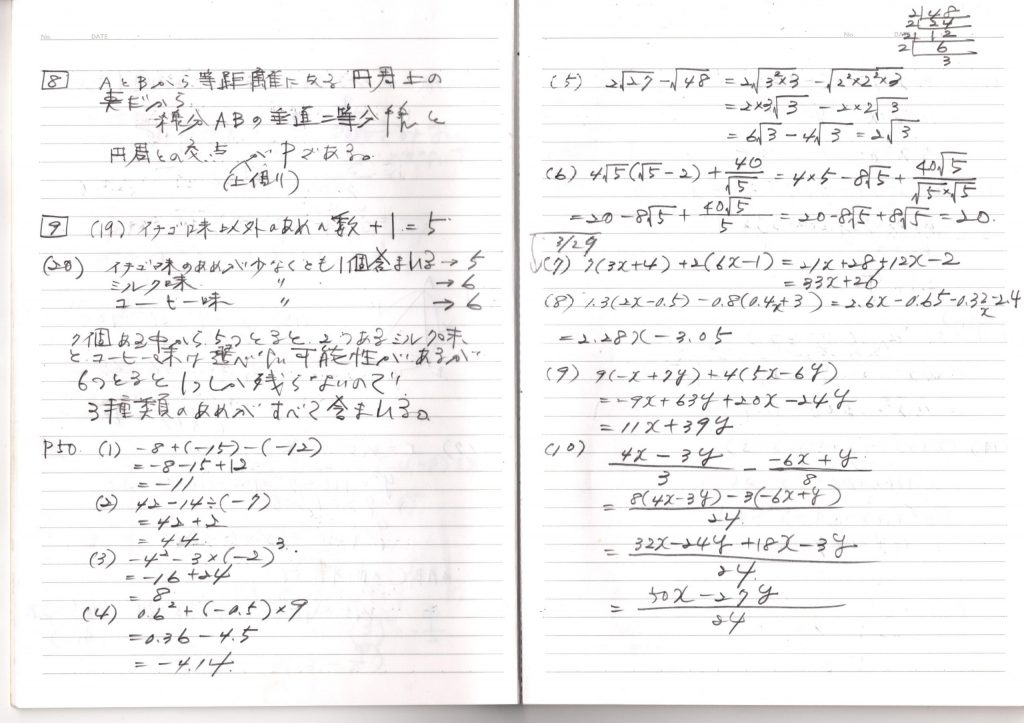 No. DATE
8 AとBから等距離にある円周上の
点だから
線分ABの垂直二等分線と
円周との交点がPである。
(上側)
9 (19) イチゴ味以外のあめの数+1=5
(20) イチゴ味のあめが少なくとも1個含まれる→5
ミルク味 〃 →6
コーヒー味 〃 →6
7個ある中から5つとると、2つあるミルク味
とコーヒー味は選べない可能性があるが
6つとると1つしか残らないので
3種類のあめがすべて含まれる。
P50. (1) -8+(-15)-(-12)
=-8-15+12
=-11
(2) 42-14÷(-7)
=42+2
=44
(3) -4²-3×(-2)³
=-16+24
=8
(4) 0.6²+(-0.5)×9
=0.36-4.5
=-4.14
No. DATE
2)48
2)24
2)12
2)6
3
(5) 2√27-√48 =2√3²×3 -√2²×2²×3
=2×3√3 -2×2√3
=6√3-4√3=2√3
(6) 4√5(√5-2)+40/√5=4×5-8√5+40√5/√5×√5
=20-8√5+40√5/5=20-8√5+8√5=20.
3/29
(7) 7(3x+4)+2(6x-1)=21x+28+12x-2
=33x+26
(8) 1.3(2x-0.5)-0.8(0.4x+3)=2.6x-0.65-0.32x-2.4
=2.28x-3.05
(9) 9(-x+7y)+4(5x-6y)
=-9x+63y+20x-24y
=11x+39y
(10) 4x-3y/3 - -6x+y/8
=8(4x-3y)-3(-6x+y)/24
=32x-24y+18x-3y/24
=50x-27y/24